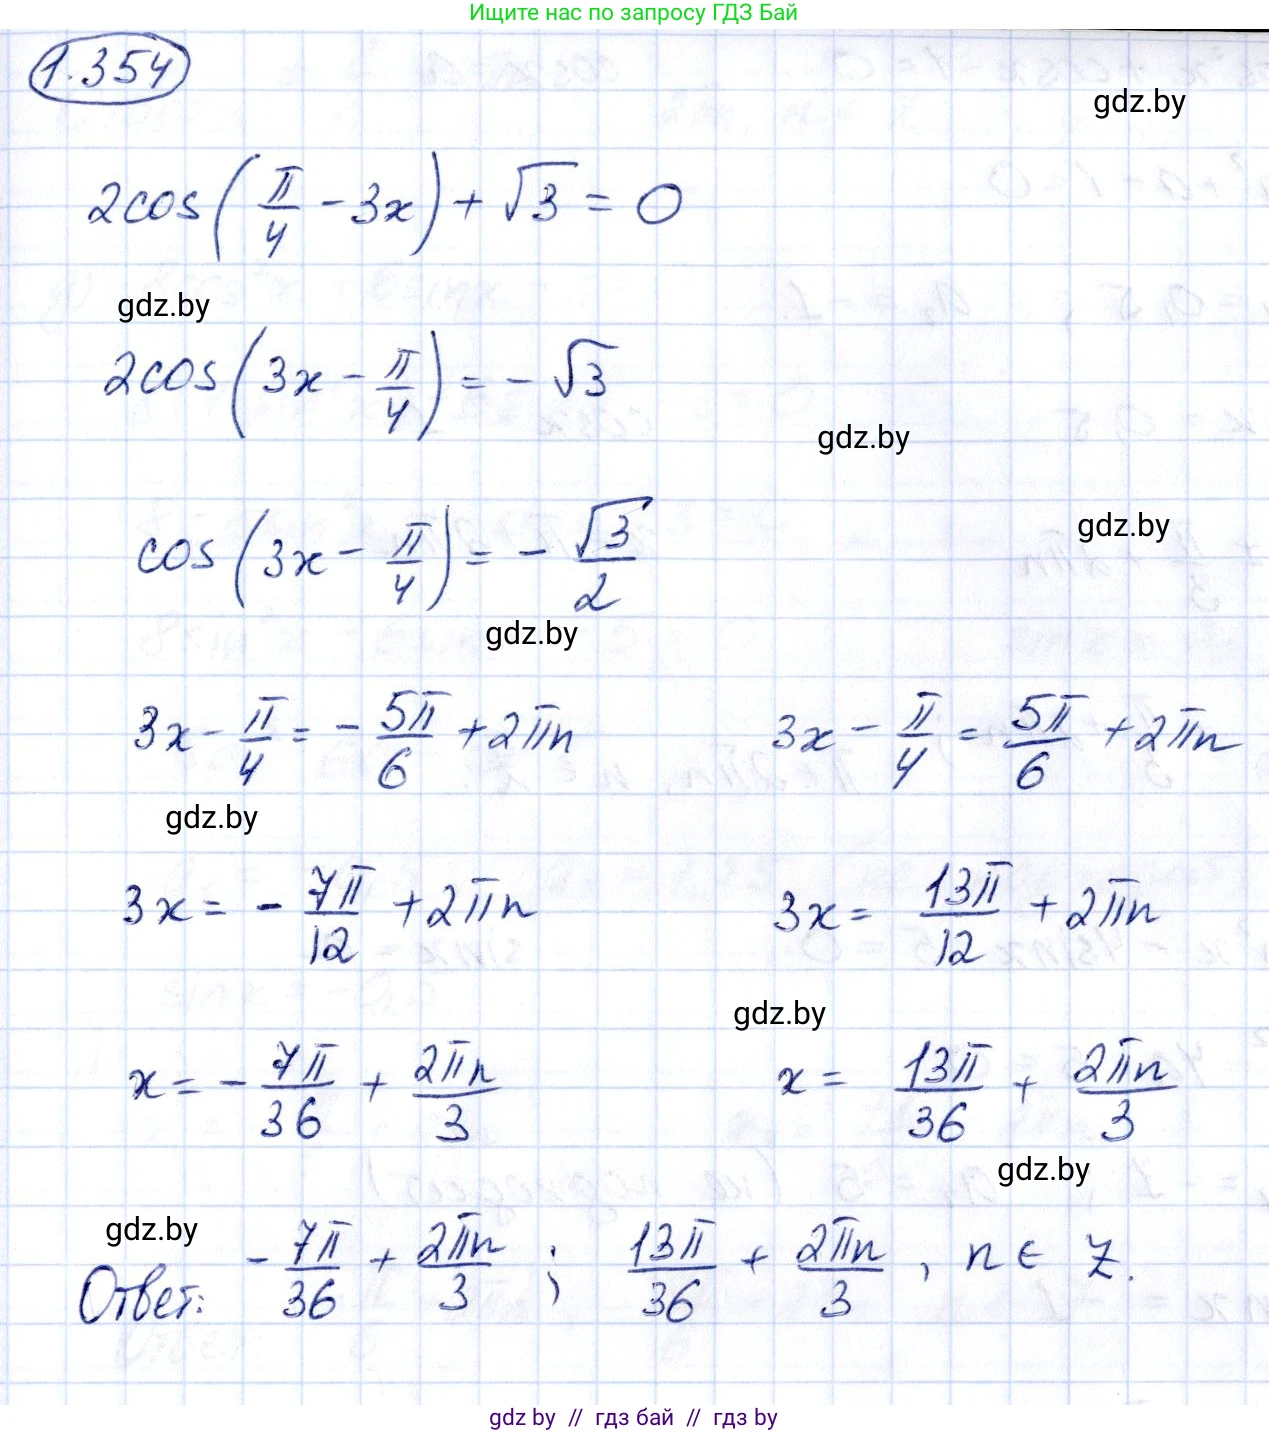 Ищите нас по запросу ГДЗ Бай
1.354
gdz.by
2cos(π/4 - 3x) + √3 = 0
gdz.by
2cos(3x - π/4) = - √3
gdz.by
gdz.by
cos(3x - π/4) = - √3/2
gdz.by
3x - π/4 = - 5π/6 + 2πn     3x - π/4 = 5π/6 + 2πn
gdz.by
3x = - 7π/12 + 2πn     3x = 13π/12 + 2πn
gdz.by
x = - 7π/36 + 2πn/3     x = 13π/36 + 2πn/3
gdz.by
gdz.by
Ответ: - 7π/36 + 2πn/3 ; 13π/36 + 2πn/3 , n ∈ Z.
gdz by // гдз бай // гдз by